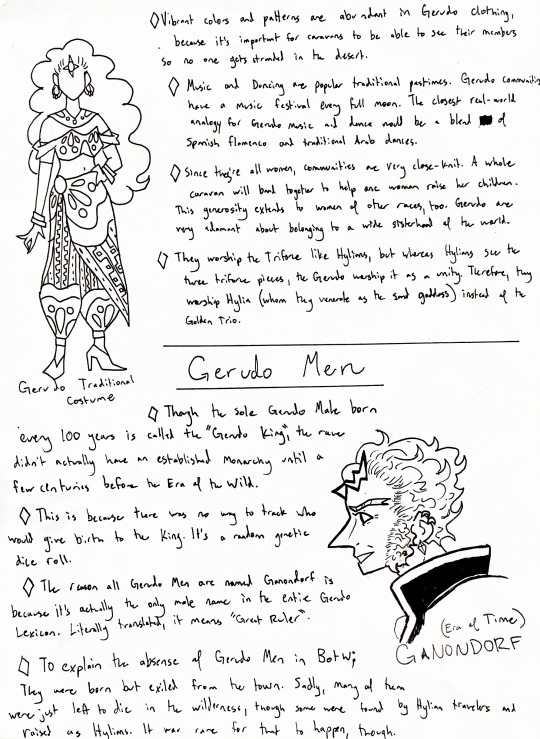 ◊ Vibrant colors and patterns are abundant in Gerudo clothing,
because it's important for caravans to be able to see their members
so no one gets stranded in the desert.
◊ Music and Dancing are popular traditional pastimes. Gerudo communities
have a music festival every full moon. The closest real-world
analogy for Gerudo music and dance would be a blend of
Spanish flamenco and traditional Arab dances.
◊ Since they're all women, communities are very close-knit. A whole
caravan will band together to help one woman raise her children.
This generosity extends to women of other races, too. Gerudo are
very adamant about belonging to a wide sisterhood of the world.
◊ They worship the Triforce like Hylians, but whereas Hylians see the
three triforce pieces, the Gerudo worship it as a unity. Therefore, they
worship Hylia (whom they venerate as the sand goddess) instead of the
Golden Trio.
Gerudo Traditional
Costume
Gerudo Men
◊ Though the sole Gerudo Male born
every 100 years is called the "Gerudo King", the race
didn't actually have an established Monarchy until a
few centuries before the Era of the Wild.
◊ This is because there was no way to track who
would give birth to the King. It's a random genetic
dice roll.
◊ The reason all Gerudo Men are named Ganondorf is
because it's actually the only male name in the entire Gerudo
Lexicon. Literally translated, it means "Great Ruler".
(Era of Time)
GANONDORF
◊ To explain the absense of Gerudo Men in BotW;
They were born but exiled from the town. Sadly, many of them
were just left to die in the wilderness, though some were found by Hylian travelers and
raised as Hylians. It was rare for that to happen, though.